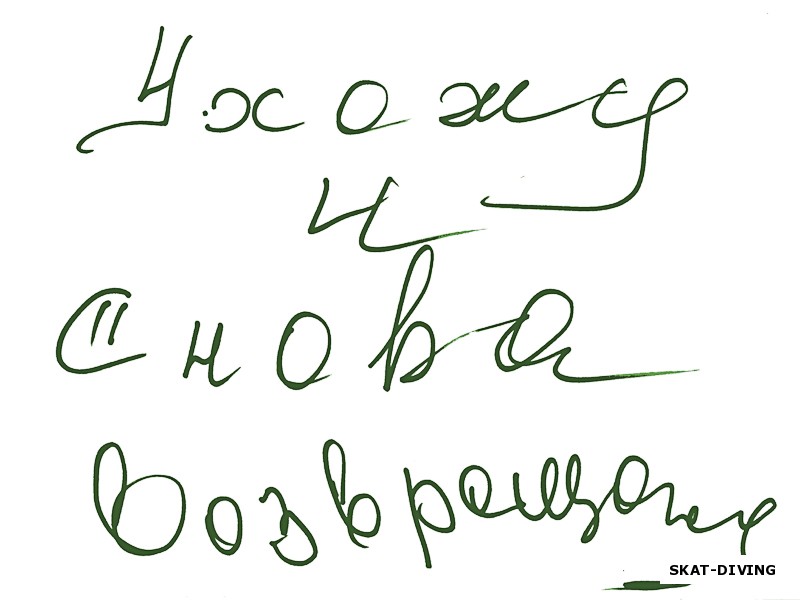 Ухожу
и
Снова
Возвращаюсь
SKAT-DIVING